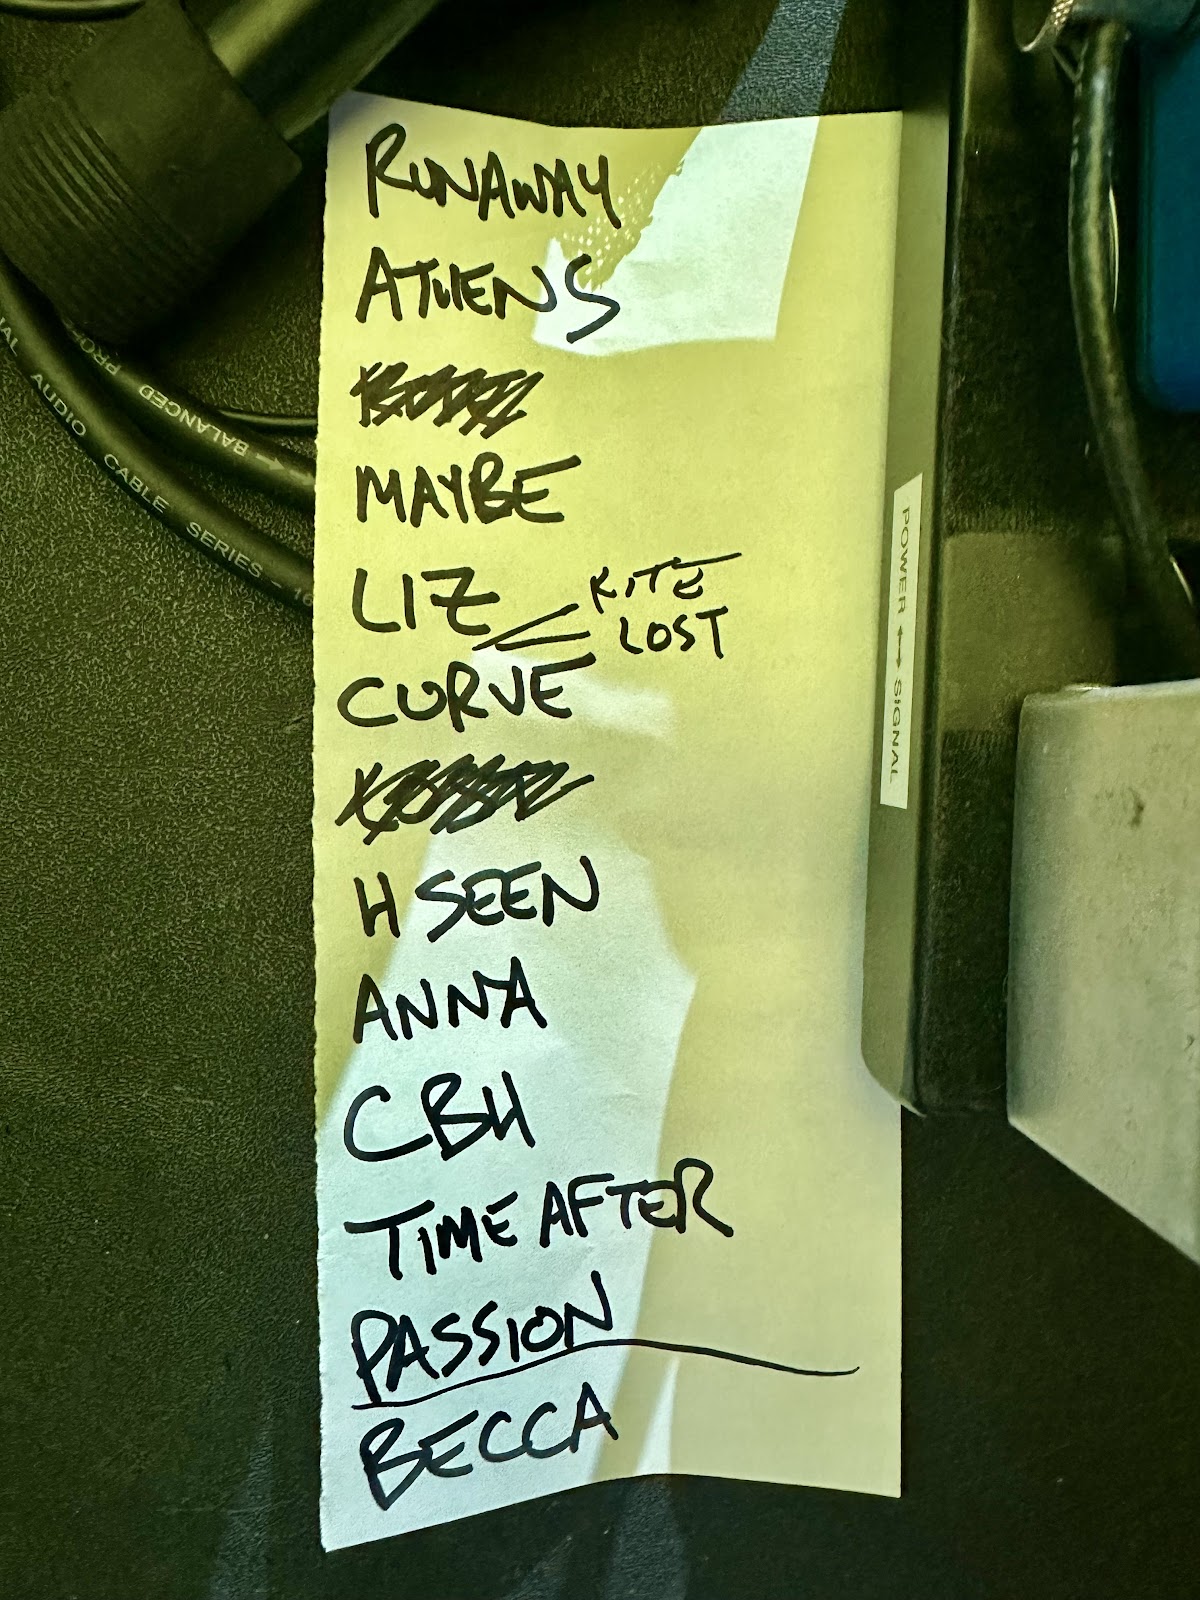 RUNAWAY
ATHENS
MAYBE
LIZ
KITE
LOST
CURVE
H SEEN
ANNA
CBH
TIME AFTER
PASSION
BECCA
POWER ↔ SIGNAL
AUDIO CABLE SERIES
BALANCED